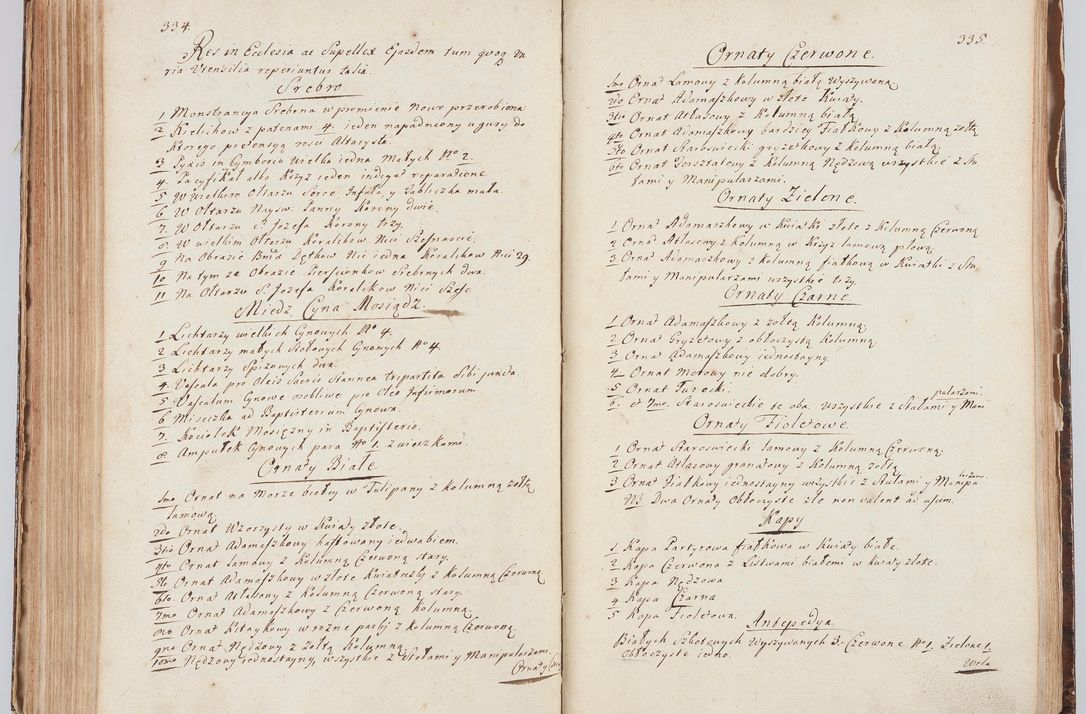 334.
Res in Ecclesia ac Supellex Ejusdem tum quoq Va
ria Utensilia reperiuntur talia.
Srebro
1 Monstrancya Srebrna w promienie Nowe przerobiona
2 Kielichow z patenami 4. ieden napadniony u gury do
ktorego pretensyą rości Altarysta.
3 Pyxis in Cymborio Wielka iedna Małych No 2.
4. Pacyfikał albo Krzyż ieden indiget reparatione
5 W Wielkim Ołtarzu Serce, Infuła, y Tabliczka mała.
6 W Ołtarzu Nayśw. Panny Korony dwie.
7. W Ołtarzu S. Jozefa Korony trzy.
8. W wielkim Ołtarzu Koralikow Nici Szesnaście.
9 Na Obrazie Bmæ Dętkow Nić iedna Koralikow Nici 29.
10 Na tym że Obrazie Pierścionkow Srebrnych dwa.
11 Na Ołtarzu S. Jozefa Koralikow Nici Szesc
Miedz, Cyna Mosiądz.
1 Lichtarzy wielkich Cynowych No 4.
2 Lichtarzy małych Stołowych Cynowych No 4.
3 Lichtarzy Spiżowych dwa.
4. Vascula pro Oleis Sacris Stannea tripartita Sibi juncta.
5 Vasculum Cynowe osobliwe pro Oleo Infirmorum
6 Miseczka ad Baptisterium Cynowa.
7. Kociołek Mosiężny in Baptisterio.
8. Ampułek Cynowych para No 1. z wieczkami.
Ornaty Białe.
1mo Ornat na Morze białey w Tulipany z kolumną żołtą
lamową.
2do Ornat Wzorzysty w Kwiaty złote.
3tio Ornat Adamaszkowy haftowany iedwabiem.
4to Ornat lamowy z Kolumną Czerwoną stary.
5to Ornat Adamaszkowy w złote Kwiateczki z Kolumną Czerwoną
6to. Ornat Atłasowy z Kolumną Czerwoną stary.
7mo Ornat Adamaszkowy z Czerwoną kolumną.
8vo Ornat Kitaykowy w rożne pasy z kolumną Czerwoną
9no Ornat Nędzowy z żołtą Kolumną
10mo Nędzowy iednostayny, wszystkie z Stołami y Manipularzami.
Ornaty Czer
335.
Ornaty Czerwone.
1mo Ornat Lamowy z kolumną białą Wyszywaną
2do Ornat Adamaszkowy w złote Kwiaty.
3tio Ornat Atłasowy z Kolumną białą
4to Ornat Adamaszkowy bardziey Fiałkowy z Kolumną żołtą
5to Ornat Staroswiecki gryzetkowy z kolumną białą.
6to Ornat Torsztatowy z Kolumną Nędzową wszystkie z Stu
łami y Manipularzami.
Ornaty Zielone.
1 Ornat Adamaszkowy w Kwiatki złote z Kolumną Czerwoną
2 Ornat Atłasowy z kolumną w Krzyż lamową płową.
3 Ornat Adamaszkowy z kolumną fiałkową w Kwiatki z Stu
łami y Manipularzami wszystkie trzy.
Ornaty Czarne.
1 Ornat Adamaszkowy z żołtą Kolumną.
2 Ornat Gryzetowy z obłoczystą Kolumną.
3 Ornat Adamaszkowy iednostayny.
4 Ornat Morowy nie dobry.
5 Ornat Turecki.
6. et 7mo. Staroswieckie te oba. wszystkie z Stułami y Mani
pularzami.
Ornaty Fioletowe.
1 Ornat Staroswiecki lamowy z Kolumną Czerwoną.
2 Ornat Atłasowy granatowy z Kolumną żołtą
3 Ornat Fiałkowy iednostayny wszystkie z Stułami y Manipu
larzami.
NB. Dwa Ornaty Obłoczyste złe non valent ad usum.
Kapy
1. Kapa Partyrowa fiałkowa w Kwiaty białe.
2 Kapa Czerwona z Listwami białemi w kwiaty złote.
3 Kapa Nędzowa
4 Kapa Czarna
5 Kapa Fioletowa.
Antepedya.
Białych Szkotowych Wyszywanych 3. Czerwone No 1. Zielone 1.
Obłoczyste iedno.
Wela